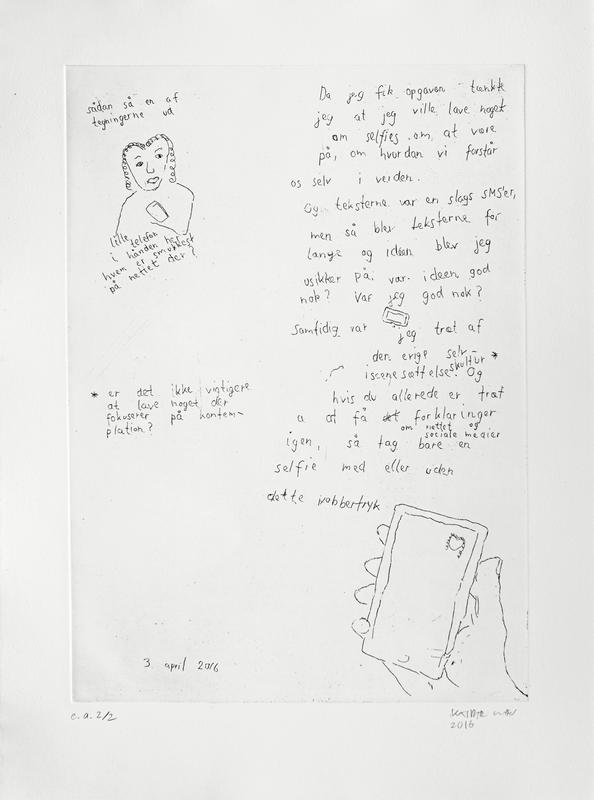 sådan så en af
tegningerne ud
lille telefon
i hånden her
hvem er smukkest
på nettet der?
Da jeg fik opgaven tænkte
jeg at jeg ville lave noget
om selfies om at være
på, om hvordan vi forstår
os selv i verden.
Og teksterne var en slags SMS'er,
men så blev teksterne for
lange og ideen blev jeg
usikker på. var ideen god
nok? Var jeg god nok?
Samtidig var jeg træt af
den evige selv-
iscenesættelseskultur * Og
hvis du allerede er træt
a at få forklaringer
om nettet og
sociale medier
igen, så tag bare en
selfie med eller uden
dette kobbertryk
* er det ikke vigtigere
at lave noget der
fokuserer på kontem-
plation?
3. april 2016
e.a. 2/2
2016